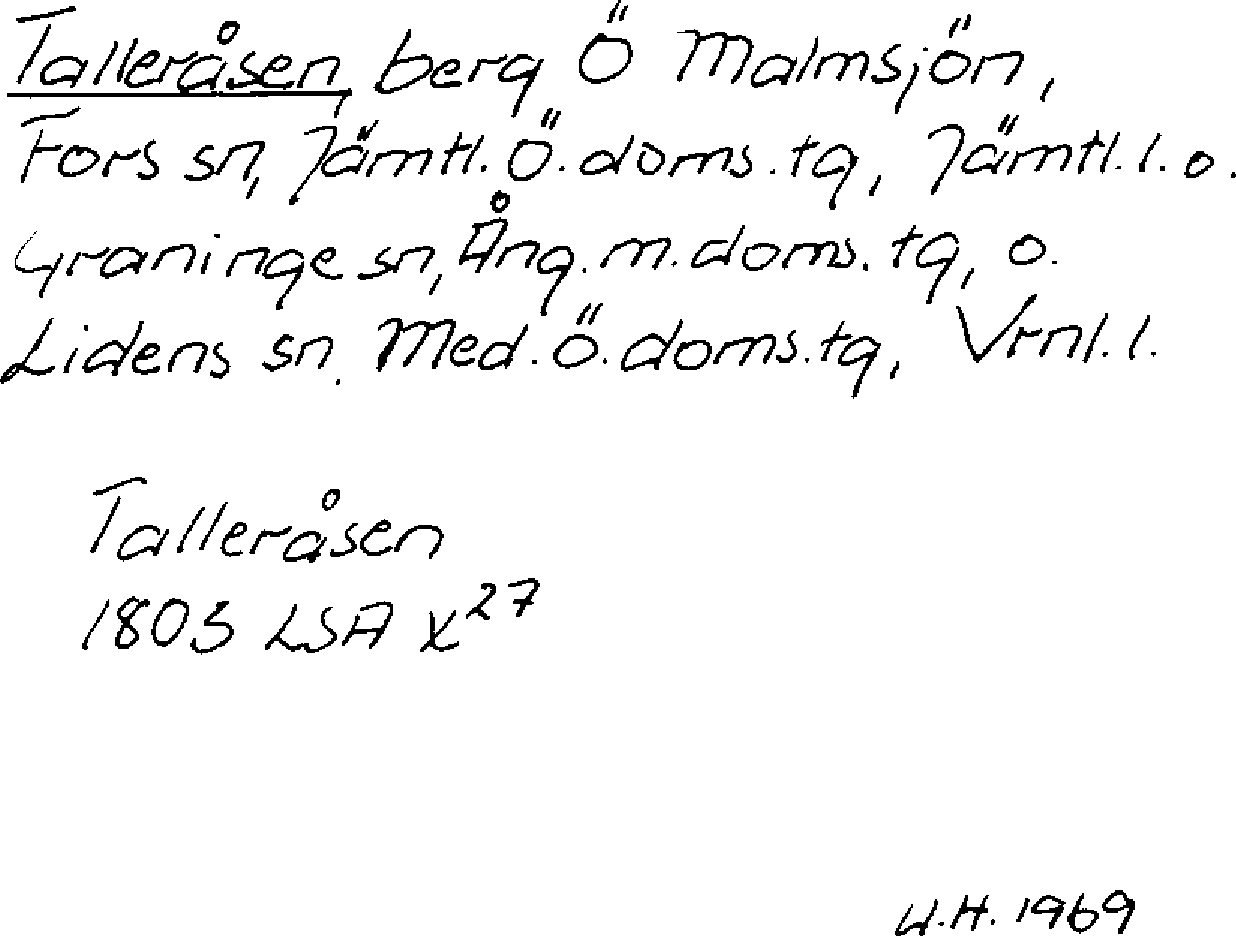 Talleråsen, berg Ö Malmsjön,
Fors sn, Jämtl. Ö. doms. tg, Jämtl. l. o.
Graninge sn, Ång. m. doms. tg, o.
Lidens sn. Med. Ö. doms. tg, Vrnl. l.
Talleråsen
1803 LSA X27
U.H. 1969